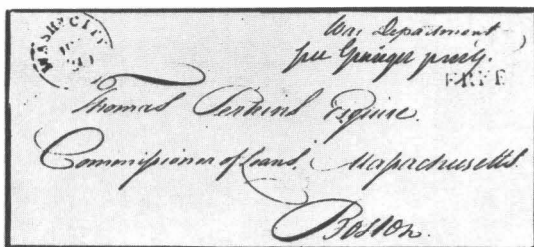 WASHN CITY
War Department
FREE
Thomas Perkins Esquire.
Commissioner of Loans. Massachusetts.
Boston.